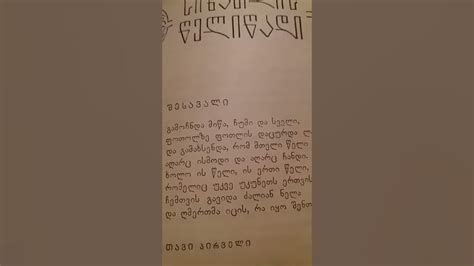 სინათლის
წელიწადი
შესავალი
გამოჩნდა მიწა, ჩუმი და სველი,
ფოთოლზე ფოთლის დაცურდა
და გამახსენდა, რომ მთელი წელი
აღარც ისმოდი და აღარც ჩანდი.
ბოლო ის წელი, ის ერთი წელი,
რომელიც უკვე უკუნეთს ერთვის
ჩემთვის გავიდა ძალიან ნელა
და ღმერთმა იცის, რა იყო შენთ
თავი პირველი